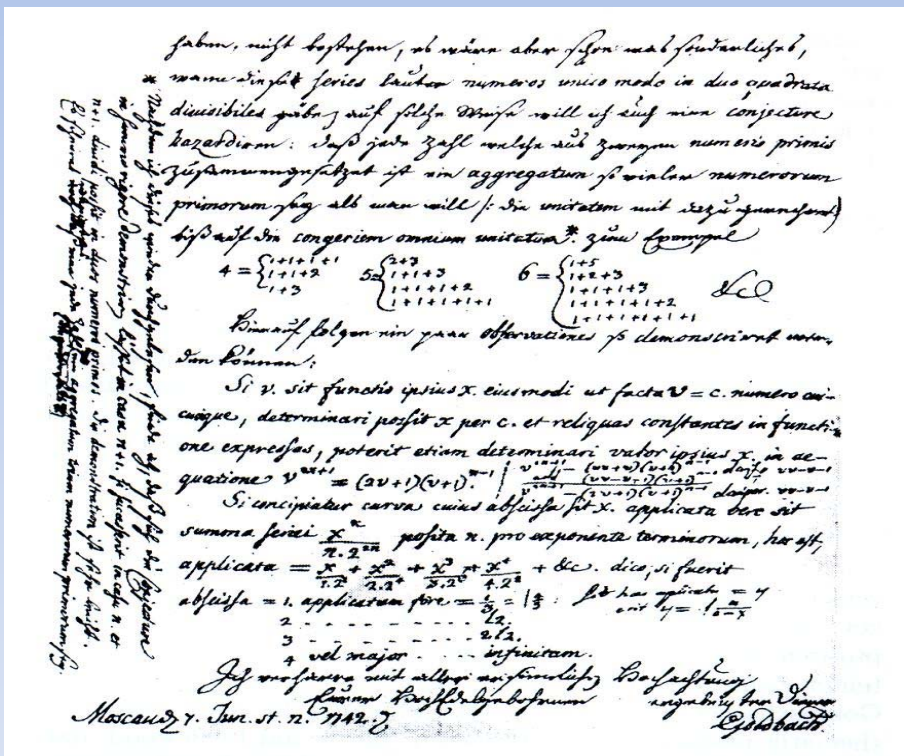 haben, nicht bestehen, es wäre aber schon was sonderliches,
wann diese series lauter numeros unico modo in duo quadrata
divisibiles gäbe, auf solche Weise will ich auch eine conjecture
hazardiren: daß jede Zahl welche aus zweyen numeris primis
zusammengesetzet ist ein aggregatum so vieler numerorum
primorum sey als man will /: die unitatem mit dazu gerechnet
biß auf die congeriem omnium unitatum* zum Exempel
4 = { 1+1+1+1
1+1+2
1+3
5 = { 2+3
1+1+3
1+1+1+2
1+1+1+1+1
6 = { 1+5
1+2+3
1+1+1+3
1+1+1+1+2
1+1+1+1+1+1
&c
Hierauf folgen ein paar observationes so demonstriret wer-
den können:
Si v. sit functio ipsius x. eiusmodi ut facta v = c. numero cui-
cunque, determinari possit x per c. et reliquas constantes in functi-
one expressas, poterit etiam determinari valor ipsius x. in ae-
quatione v^2x+1 = (2v+1)(v+1)^n-1
Si concipiatur curva cuius abscissa sit x. applicata vero sit
summa seriei x^n / n.2^2n posita n. pro exponente terminorum, hoc est,
applicata = x/1.2^2 + x^2/2.2^4 + x^3/3.2^6 + x^4/4.2^8 + &c. dico, si fuerit
abscissa = 1. applicatam fore = l 4/3
2 - - - - l2.
3 - - - - 2l2.
4 vel major - - infinitam.
Ich verharre mit aller Hochachtung
Eurer HochEdelgebohrnen ergebenster Diener
Moscau 7. Jun. st. n. 1742. Goldbach.
* Nachdem ich dieses wieder durchgelesen, finde ich, daß sich die conjecture
in summo rigore demonstriren lässet in casu n+1. si successerit in casu n. et
n+1. dividi possit in duos numeros primos. die demonstration ist sehr leicht.
Es scheinet daß eine jede Zahl ein aggregatum trium numerorum primorum sey.